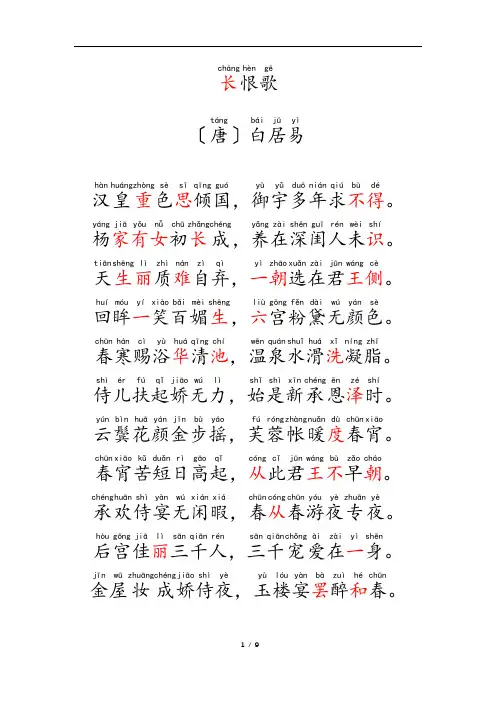 cháng hèn gē
长恨歌
táng bái jū yì
〔唐〕白居易
hàn huáng zhòng sè sī qīng guó yù yǔ duō nián qiú bù dé
汉皇重色思倾国，御宇多年求不得。
yáng jiā yǒu nǚ chū zhǎng chéng yǎng zài shēn guī rén wèi shí
杨家有女初长成，养在深闺人未识。
tiān shēng lì zhì nán zì qì yì zhāo xuǎn zài jūn wáng cè
天生丽质难自弃，一朝选在君王侧。
huí móu yí xiào bǎi mèi shēng liù gōng fěn dài wú yán sè
回眸一笑百媚生，六宫粉黛无颜色。
chūn hán cì yù huá qīng chí wēn quán shuǐ huá xǐ níng zhī
春寒赐浴华清池，温泉水滑洗凝脂。
shì ér fú qǐ jiāo wú lì shǐ shì xīn chéng ēn zé shí
侍儿扶起娇无力，始是新承恩泽时。
yún bìn huā yán jīn bù yáo fú róng zhàng nuǎn dù chūn xiāo
云鬓花颜金步摇，芙蓉帐暖度春宵。
chūn xiāo kǔ duǎn rì gāo qǐ cóng cǐ jūn wáng bù zǎo cháo
春宵苦短日高起，从此君王不早朝。
chéng huān shì yàn wú xián xiá chūn cóng chūn yóu yè zhuān yè
承欢侍宴无闲暇，春从春游夜专夜。
hòu gōng jiā lì sān qiān rén sān qiān chǒng ài zài yì shēn
后宫佳丽三千人，三千宠爱在一身。
jīn wū zhuāng chéng jiāo shì yè yù lóu yàn bà zuì hé chūn
金屋妆成娇侍夜，玉楼宴罢醉和春。
1 / 9